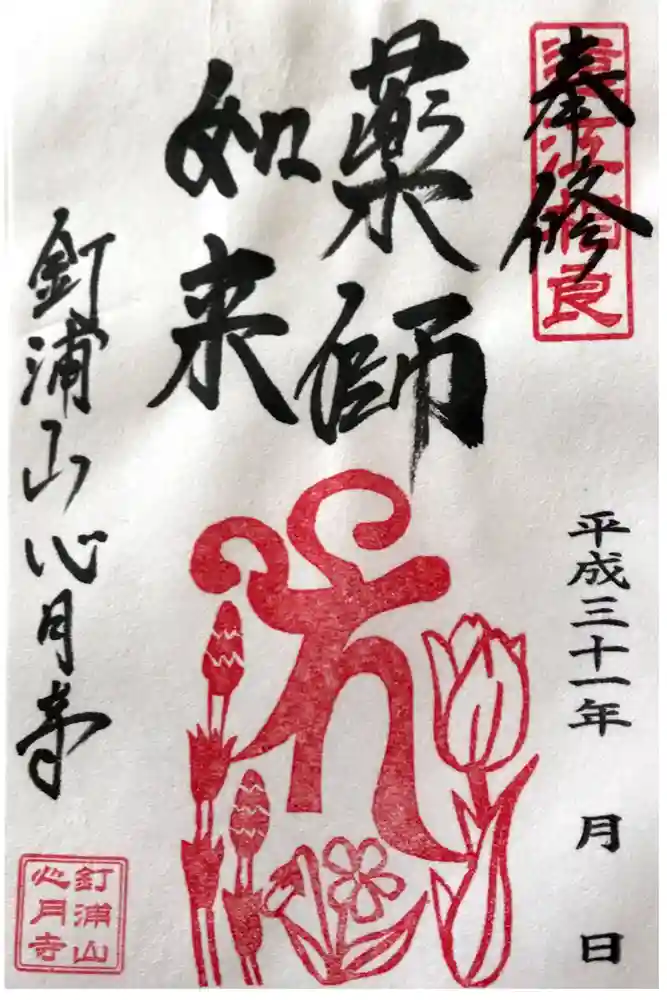 奉修
遠江相良
薬師
如来
平成三十一年　月　日
釘浦山心月寺
釘浦山
心月寺